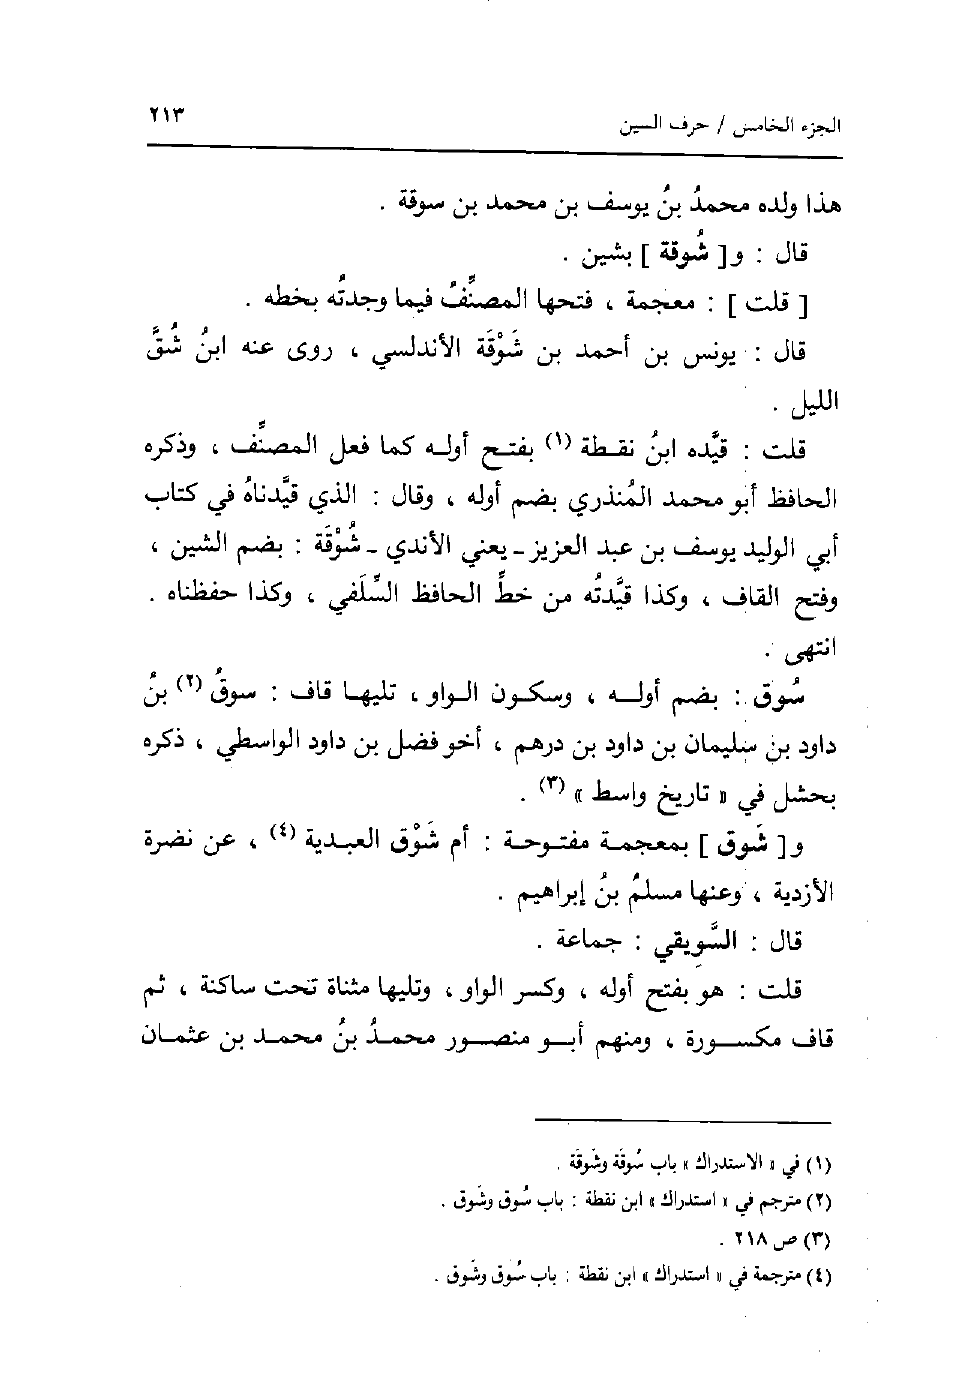 الجزء الخامس / حرف السين
٢١٣
هذا ولده محمدُ بنُ يوسف بن محمد بن سوقة .
قال : و[ شُوقة ] بشين .
[ قلت ] : معجمة ، فتحها المصنِّفُ فيما وجدتُه بخطه .
قال : يونس بن أحمد بن شَوْقَة الأندلسي ، روى عنه ابنُ شُقَّ
الليل .
قلت : قيَّده ابنُ نقطة (١) بفتح أوله كما فعل المصنِّف ، وذكره
الحافظ أبو محمد المُنذري بضم أوله ، وقال : الذي قيَّدناهُ في كتاب
أبي الوليد يوسف بن عبد العزيز ـ يعني الأندي ـ شُوْقَة : بضم الشين ،
وفتح القاف ، وكذا قيَّدتُه من خطِّ الحافظ السِّلَفي ، وكذا حفظناه .
انتهى .
سُوق : بضم أوله ، وسكون الواو ، تليها قاف : سوقُ (٢) بنُ
داود بن سليمان بن داود بن درهم ، أخو فضل بن داود الواسطي ، ذكره
بحشل في « تاريخ واسط » (٣) .
و[ شَوق ] بمعجمة مفتوحة : أم شَوْق العبدية (٤) ، عن نضرة
الأزدية ، وعنها مسلمُ بنُ إبراهيم .
قال : السَّوِيقي : جماعة .
قلت : هو بفتح أوله ، وكسر الواو ، وتليها مثناة تحت ساكنة ، ثم
قاف مكسورة ، ومنهم أبو منصور محمدُ بنُ محمد بن عثمان
(١) في « الاستدراك » باب سُوقَة وشَوقَة .
(٢) مترجم في « استدراك » ابن نقطة : باب سُوق وشَوق .
(٣) ص ٢١٨ .
(٤) مترجمة في « استدراك » ابن نقطة : باب سُوق وشَوق .